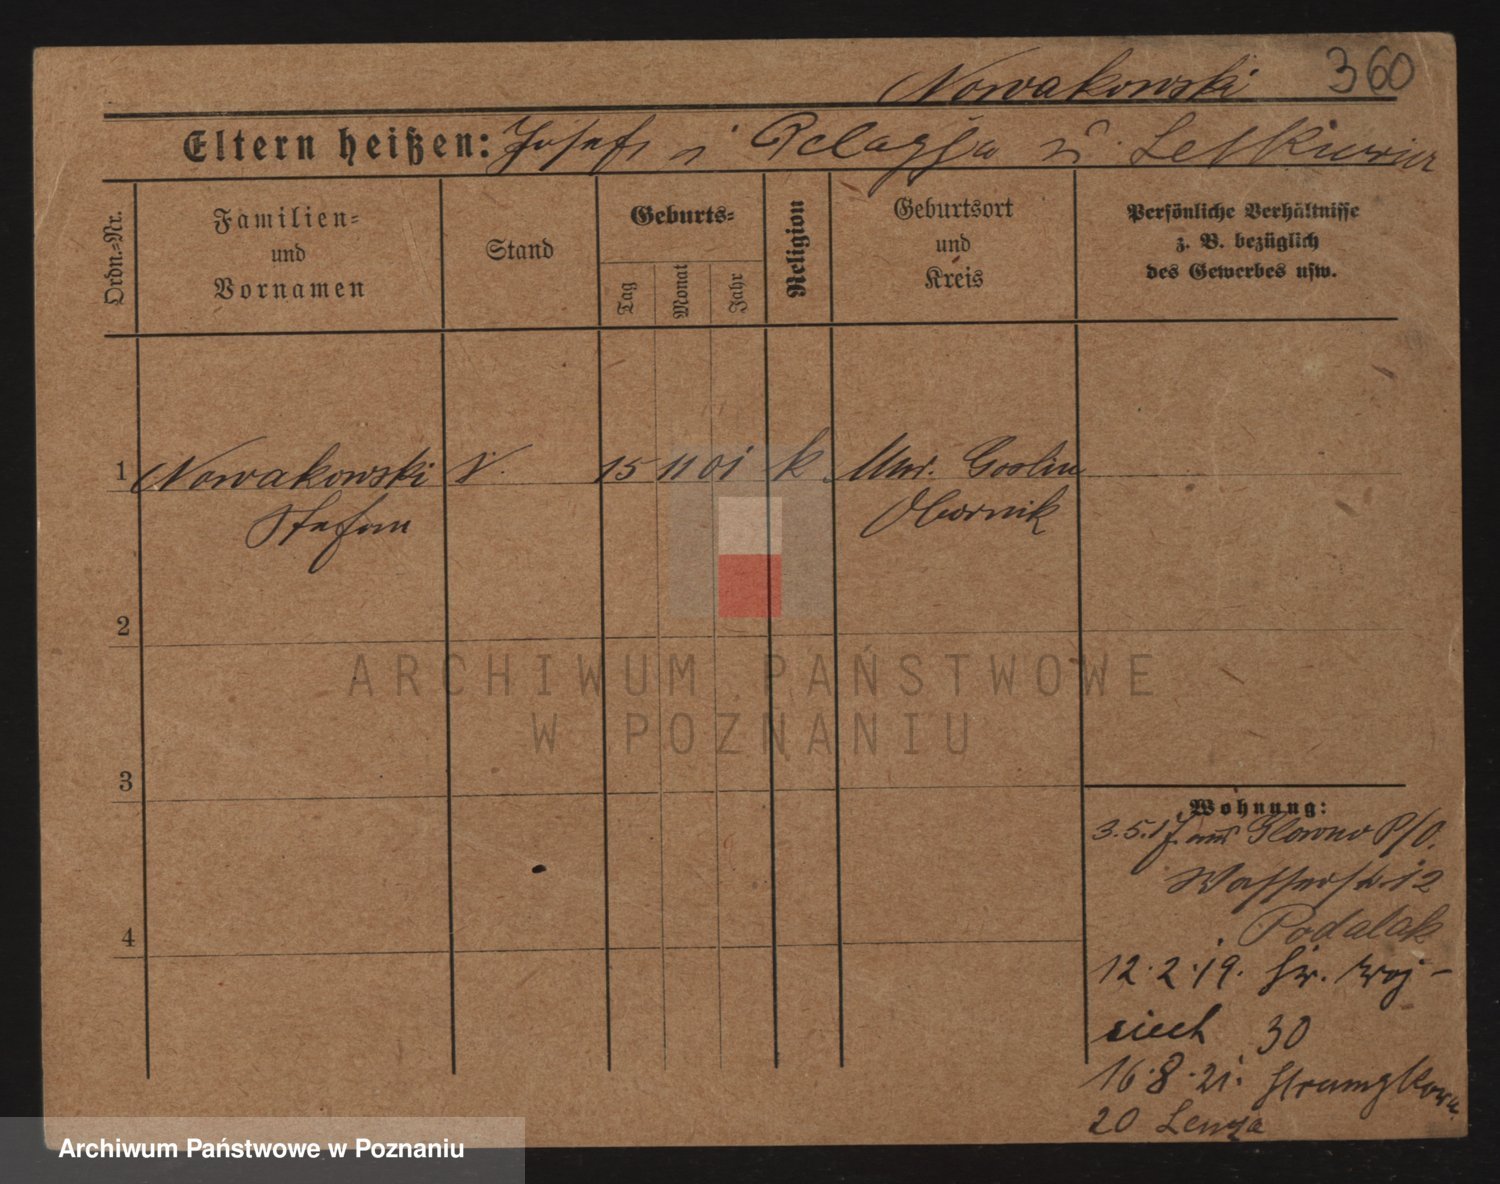 Nowakowski 360
Eltern heißen: Josef i Pelagja
Ordn.-Nr.
Familien-
und
Vornamen
Stand
Geburts-
Tag
Monat
Jahr
Religion
Geburtsort
und
Kreis
Persönliche Verhältnisse
z. B. bezüglich
des Gewerbes usw.
1 Nowakowski 15 11 01 k Mur. Goslin
Stefan Obornik
2
3
4
Wohnung:
3.5.17. aus Glowno P/O.
Wasserstr. 12
Podalak
12.2.19. św. Woj-
ciech 30
16.8.21.
20 Lenza
ARCHIWUM PAŃSTWOWE
W POZNANIU
Archiwum Państwowe w Poznaniu